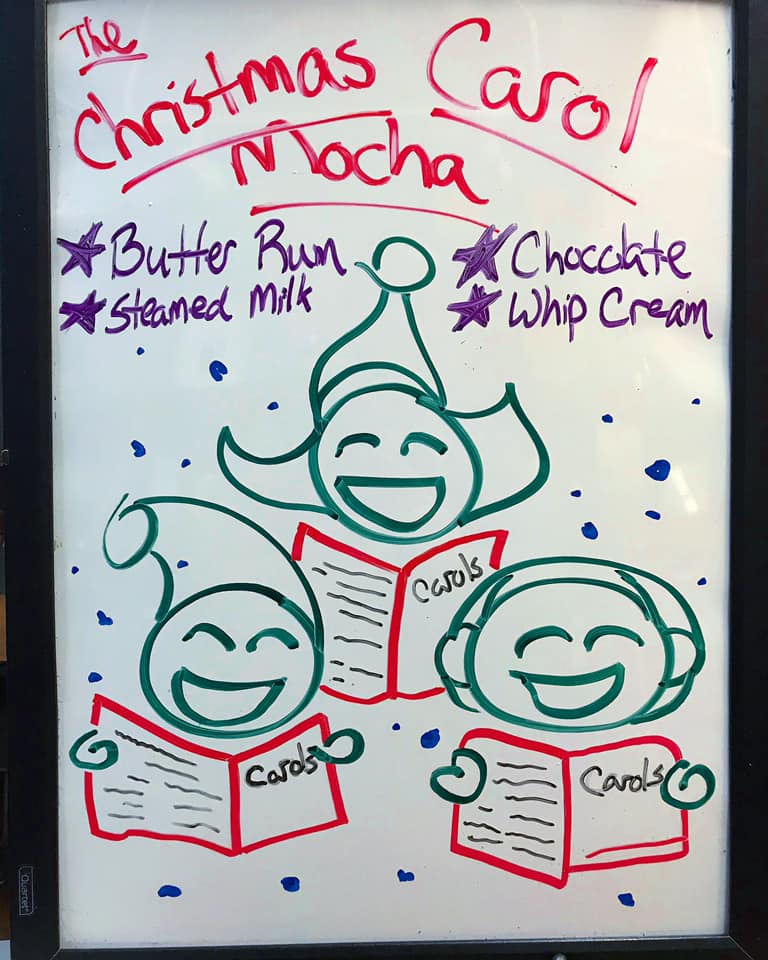 The
Christmas Carol
Mocha
Butter Rum
Chocolate
Steamed Milk
Whip Cream
Carols
Carols
Carols
Quartet